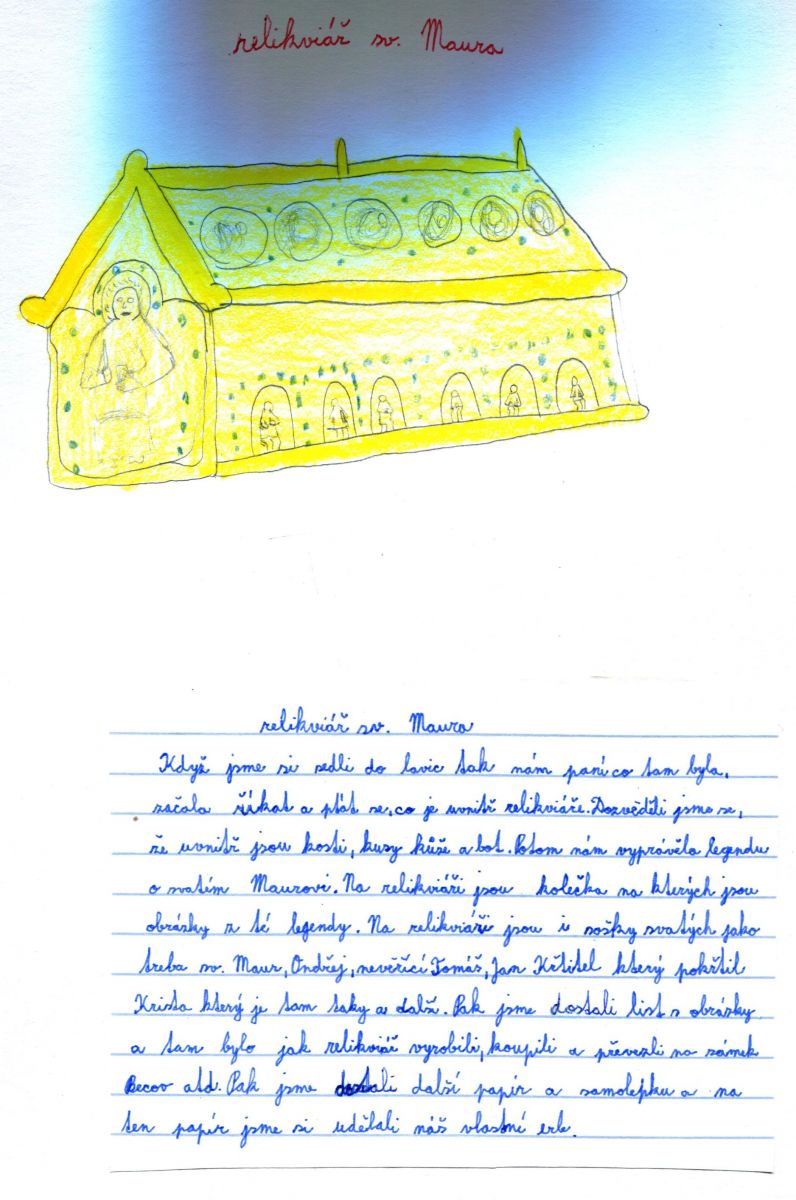 relikviář sv. Maura
relikviář sv. Maura
Když jsme si sedli do lavic tak nám paní co tam byla,
začala říkat a ptát se, co je uvnitř relikviáře. Dozvěděli jsme se,
že uvnitř jsou kosti, kusy kůže a bot. Potom nám vyprávěla legendu
o svatém Maurovi. Na relikviáři jsou kolečka na kterých jsou
obrázky z té legendy. Na relikviáři jsou i sošky svatých jako
třeba sv. Maur, Ondřej, nevěřící Tomáš, Jan Křtitel který pokřtil
Krista který je tam taky a další. Pak jsme dostali list s obrázky
a tam bylo jak relikviář vyrobili, koupili a převezli na zámek
Becov atd. Pak jsme dostali další papír a samolepku a na
ten papír jsme si udělali náš vlastní erb.